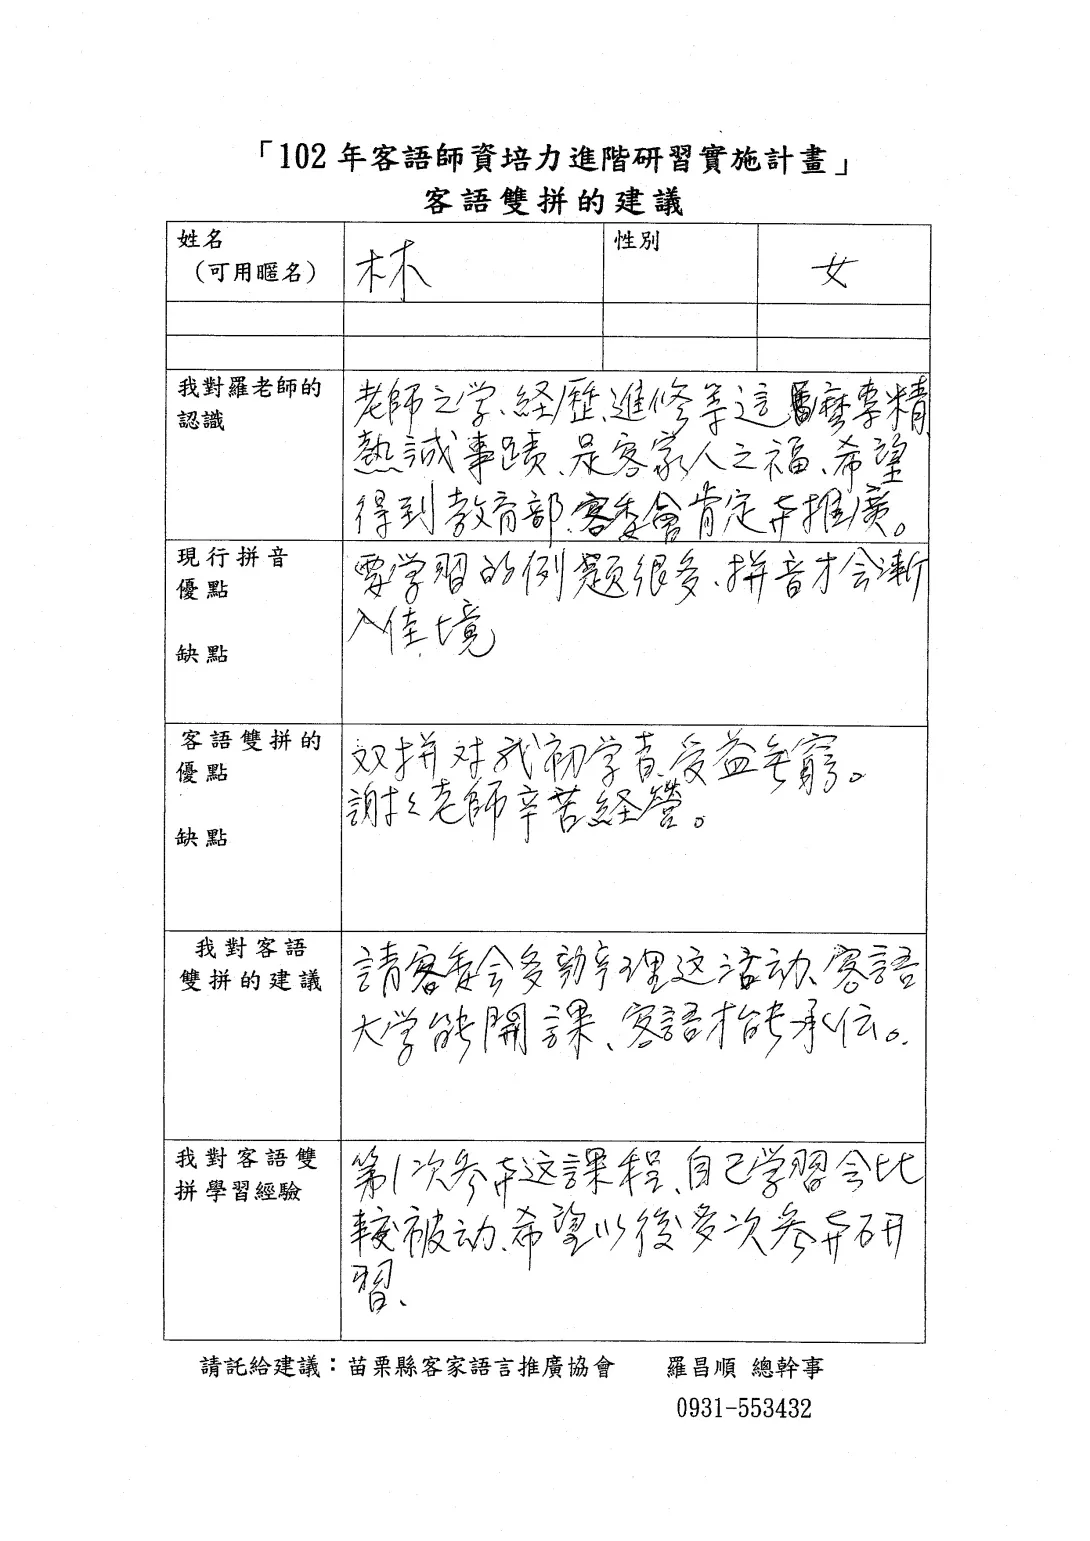 「102 年客語師資培力進階研習實施計畫」
客語雙拼的建議
姓名
(可用暱名)
林
性別
女
我對羅老師的
認識
老師之学、経歷、進修等這麼專精
熱誠事蹟、是客家人之福、希望
得到教育部、客委會肯定并推廣。
現行拼音
優點
缺點
要学習的例題很多、拼音才会漸
入佳境
客語雙拼的
優點
缺點
双拼对我初学者、受益無窮。
謝謝老師辛苦経營。
我對客語
雙拼的建議
請客委会多辦理这活动、客語
大学能開課、客語才能承伝。
我對客語雙
拼學習經驗
第1次参与这課程、自己学習会比
較被动、希望以後多次参与研
習、
請託給建議：苗栗縣客家語言推廣協會 羅昌順 總幹事
0931-553432